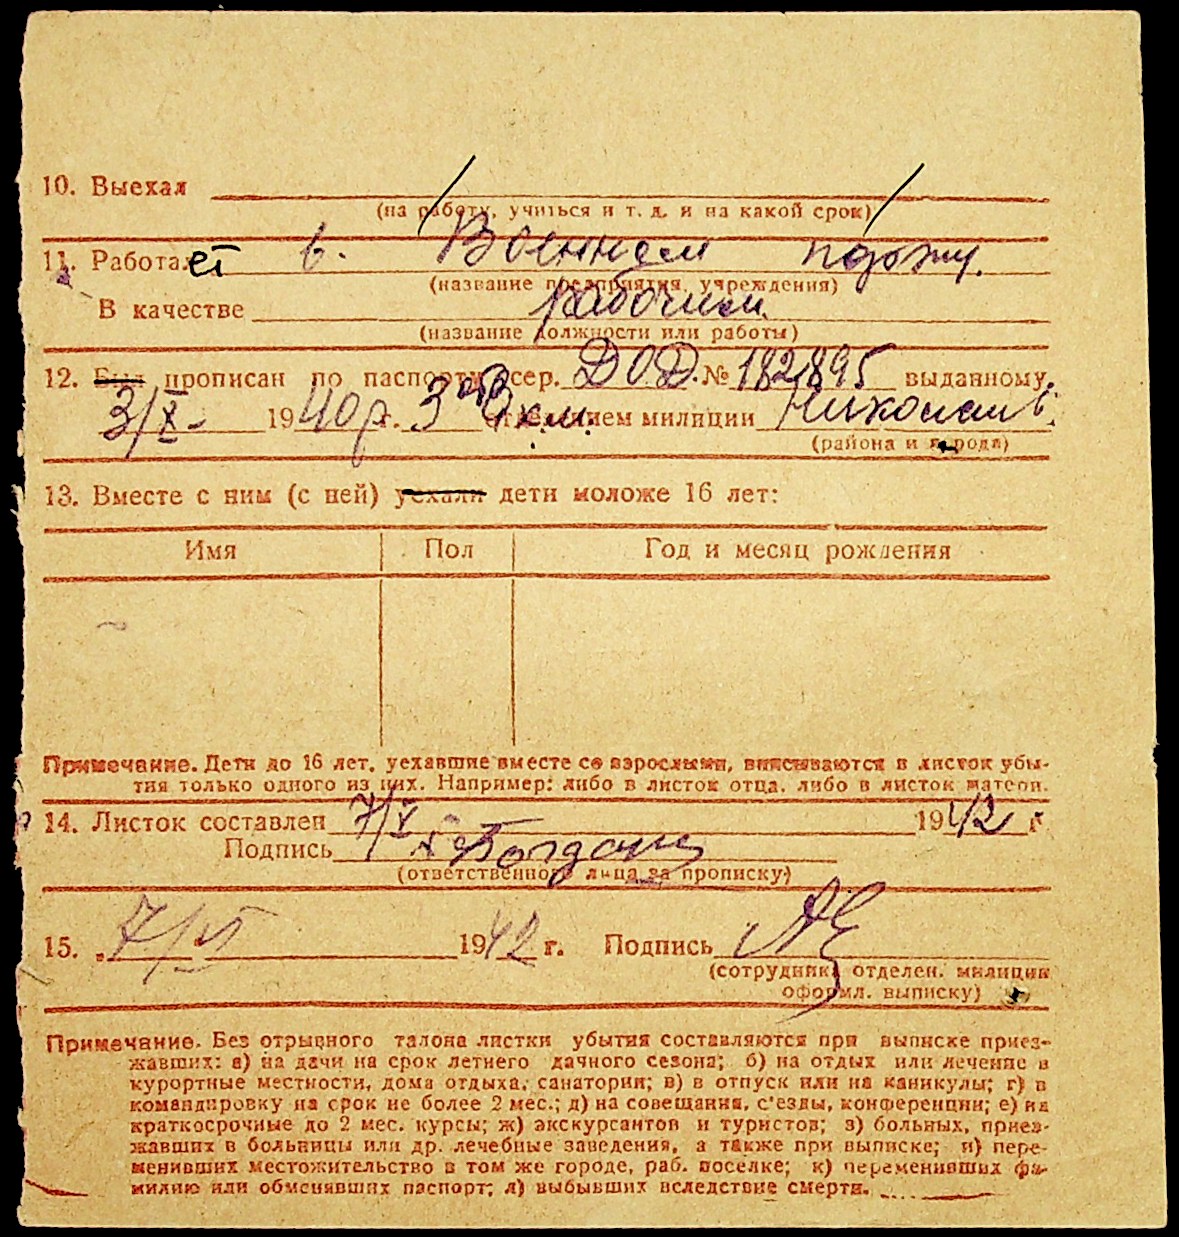 10. Выехал
(на работу, учиться и т. д. и на какой срок)
11. Работает в. Военном
(название предприятия, учреждения)
В качестве рабочим.
(название должности или работы)
12. Был прописан по паспорту сер. ДОД. № 182895 выданному
3/X - 1940 г. 3 отделением милиции
(района и города)
13. Вместе с ним (с ней) уехали дети моложе 16 лет:
Имя Пол Год и месяц рождения
Примечание. Дети до 16 лет, уехавшие вместе со взрослыми, вписываются в листок убы-
тия только одного из них. Например: либо в листок отца, либо в листок матери.
14. Листок составлен 7/V 1942 г.
Подпись
(ответственного лица за прописку)
15. 7/VI 1942 г. Подпись
(сотрудник отделен. милиции
оформл. выписку)
Примечание. Без отрывного талона листки убытия составляются при выписке приез-
жавших: а) на дачи на срок летнего дачного сезона; б) на отдых или лечение в
курортные местности, дома отдыха, санатории; в) в отпуск или на каникулы; г) в
командировку на срок не более 2 мес.; д) на совещания, с'езды, конференции; е) на
краткосрочные до 2 мес. курсы; ж) экскурсантов и туристов; з) больных, приез-
жавших в больницы или др. лечебные заведения, а также при выписке; и) пере-
менивших местожительство в том же городе, раб. поселке; к) переменивших фа-
милию или обменявших паспорт; л) выбывших вследствие смерти.